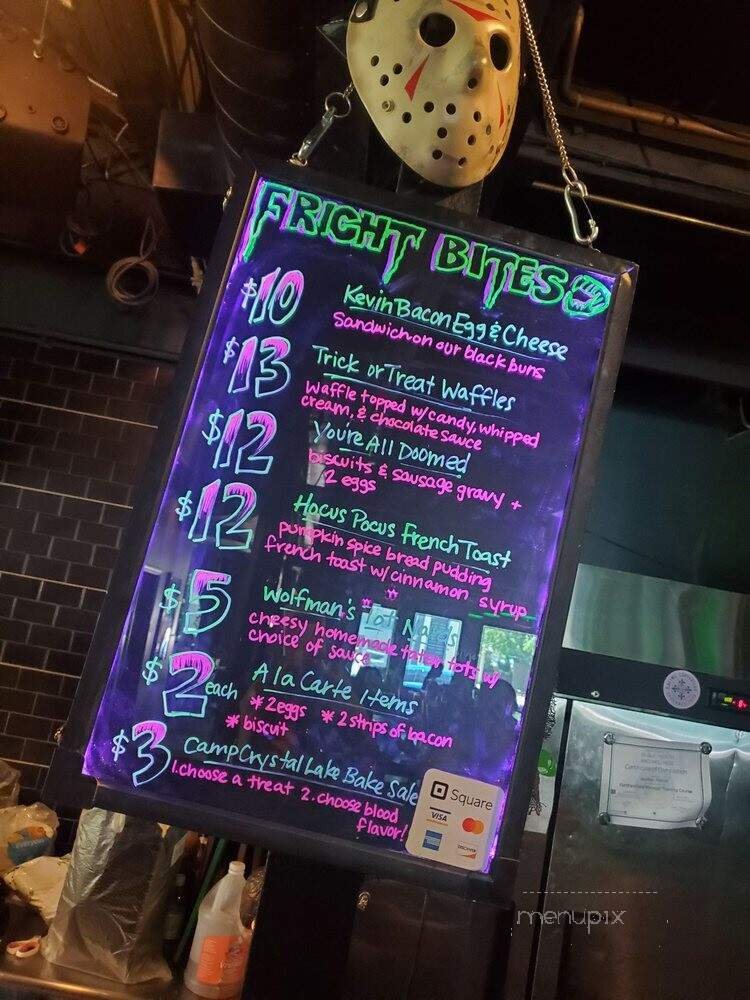 FRIGHT BITES
$10 Kevin Bacon Egg & Cheese
Sandwich on our black buns
$13 Trick or Treat Waffles
Waffle topped w/candy, whipped
cream, & chocolate sauce
$12 You're All Doomed
biscuits & sausage gravy +
2 eggs
$12 Hocus Pocus French Toast
pumpkin spice bread pudding
french toast w/ cinnamon syrup
$5 Wolfman's Tot Nards
cheesy homemade tater tots w/
choice of sauce
$2 each A la Carte Items
* 2 eggs * 2 strips of bacon
* biscuit
$3 Camp Crystal Lake Bake Sale
1. choose a treat 2. choose blood
flavor!
Square
VISA
DISCOVER
menupix